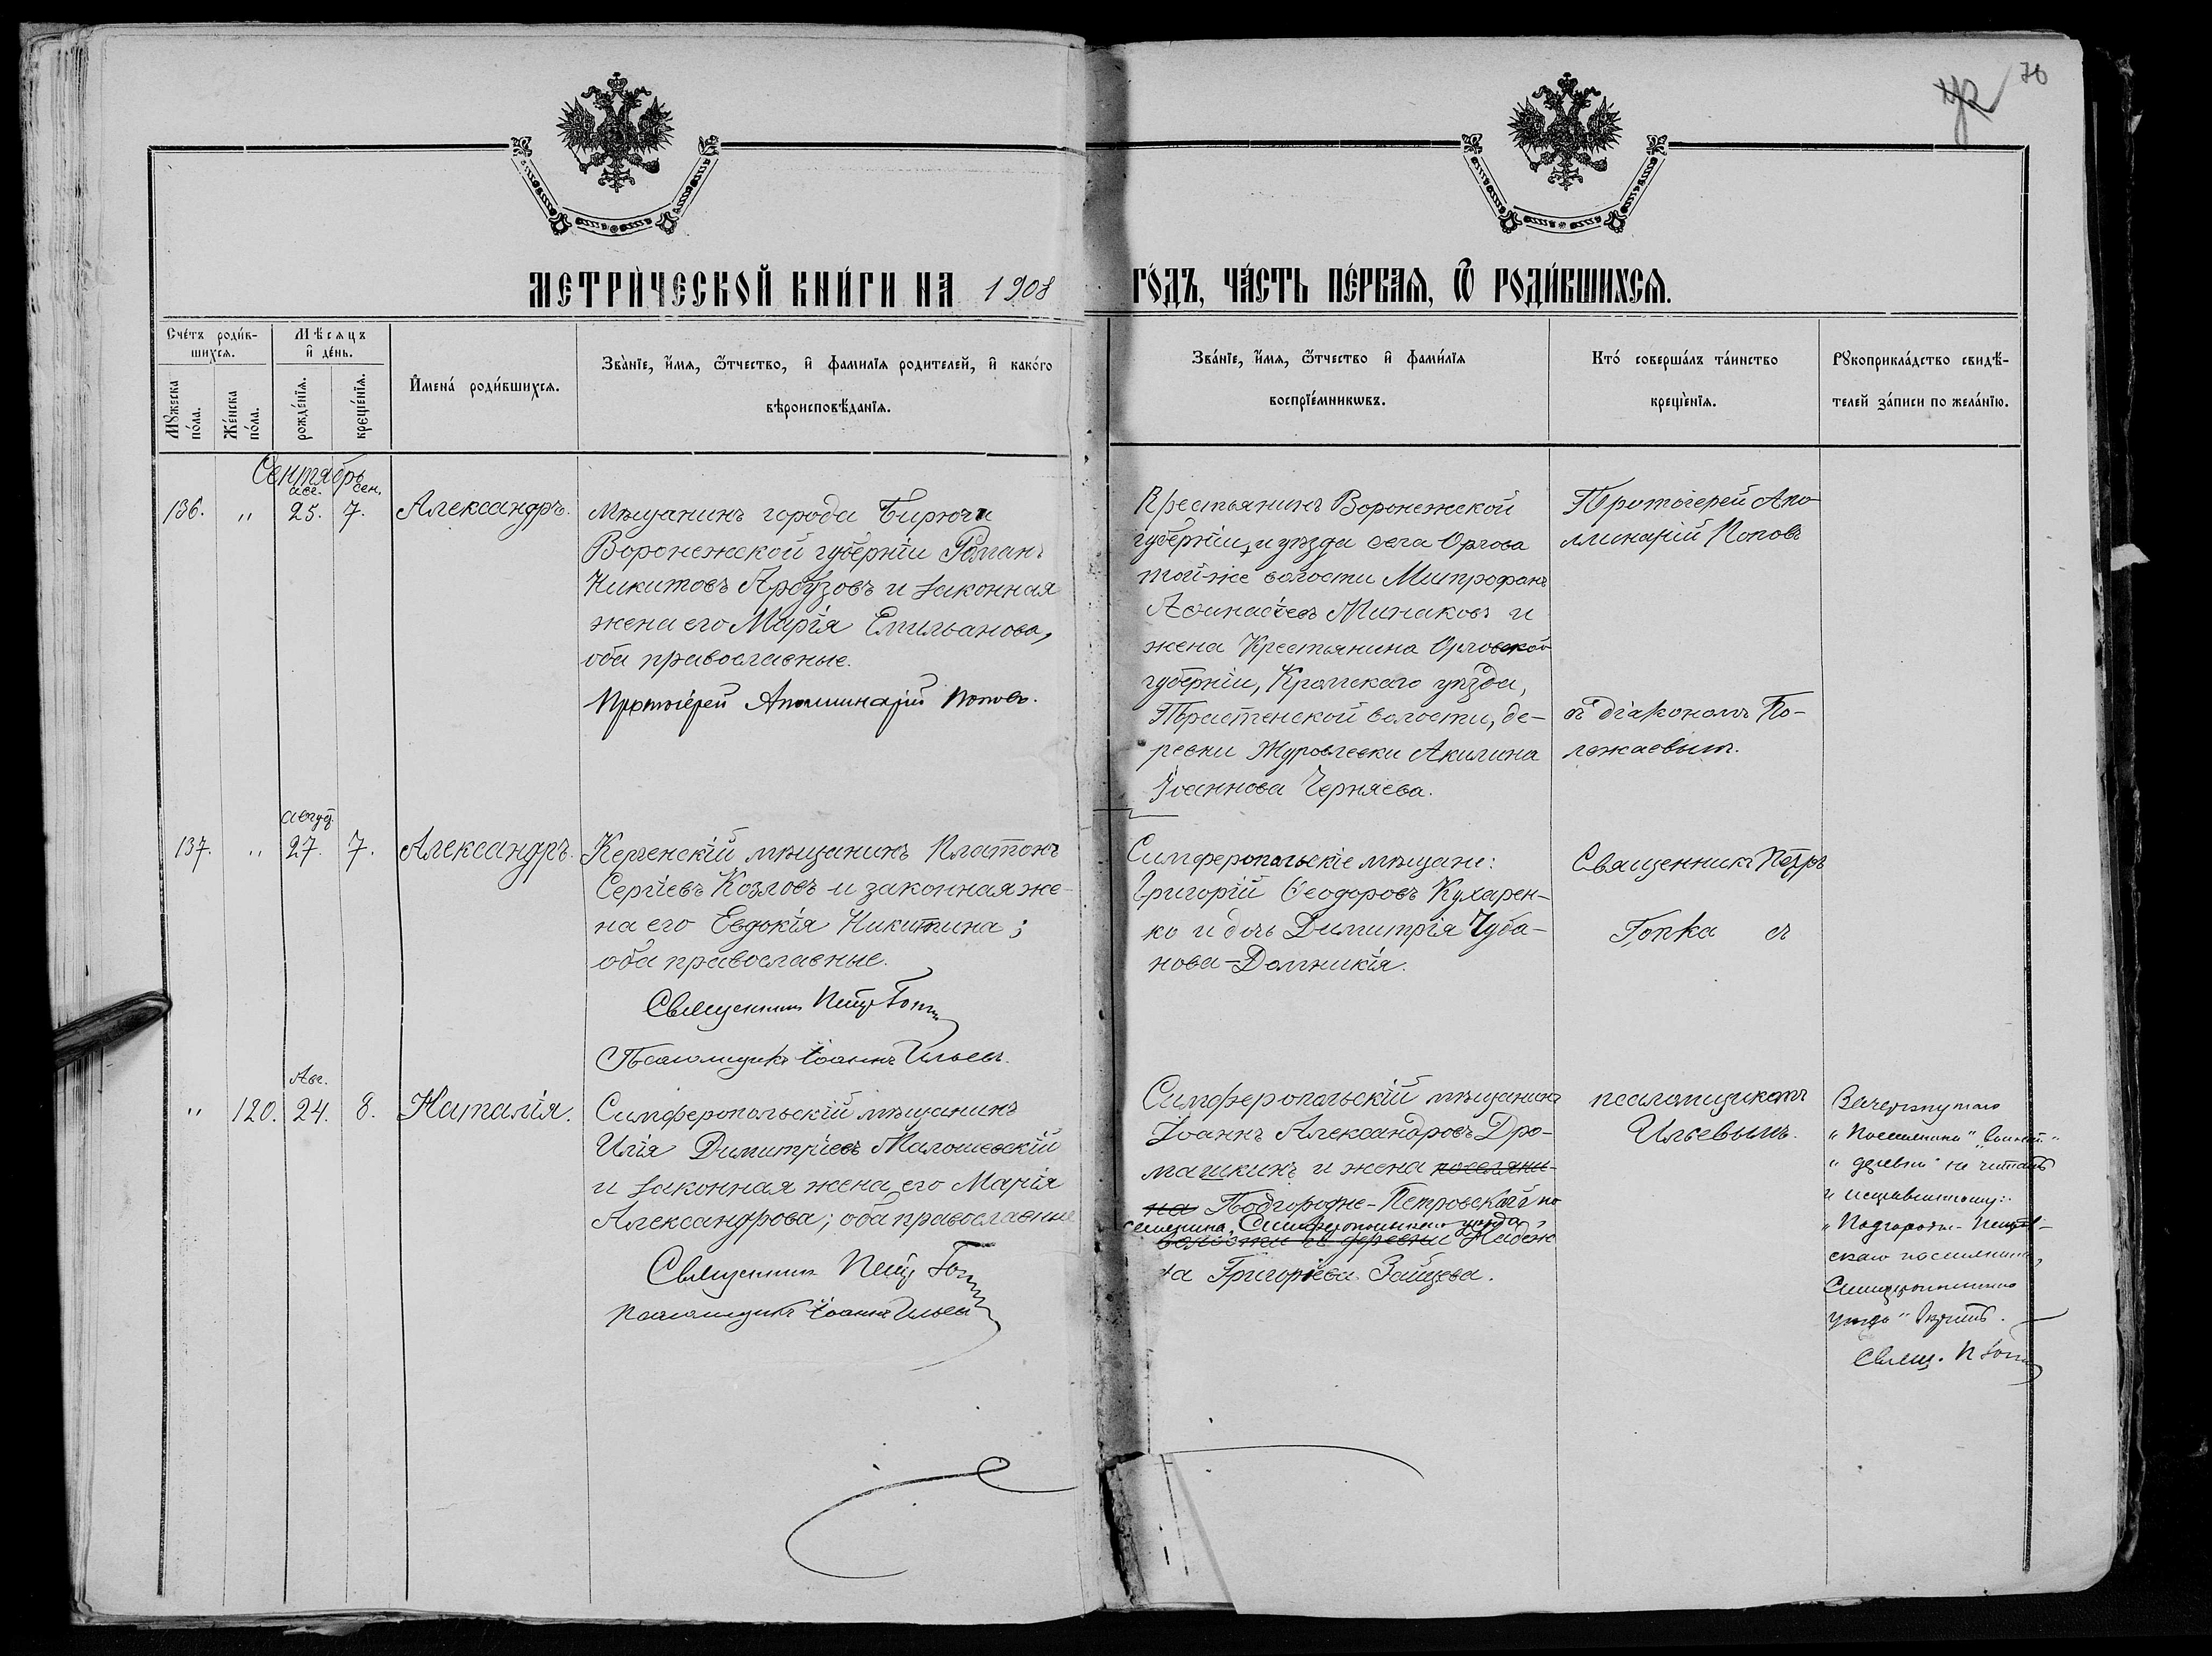 70
МЕТРИЧЕСКОЙ КНИГИ НА 1908 ГОДЪ, ЧАСТЬ ПЕРВАЯ, Ѿ РОДИВШИХСЯ.
Счетъ родив-
шихся.
Мѣсяцъ
и день.
Мꙋжеска
пола.
Женска
пола.
рожденїя.
крещенїя.
Имена родившихся.
Званїе, имя, ѿтчество, и фамилїя родителей, и какого
вѣроисповѣданїя.
Званїе, имя, ѿтчество и фамилїя
воспрїемникωвъ.
Кто совершалъ таинство
крещенїя.
Рꙋкоприкладство свидѣ-
телей записи по желанїю.
Сентябрь
авг. сен.
136. „ 25. 7. Александръ.
Мѣщанинъ города Бирючи
Воронежской губерніи Романъ
Никитовъ Арбузовъ и законная
жена его Марія Емильанова,
оба православные.
Протоіерей Аполлинарій Поповъ.
Крестьянинъ Воронежской
губерніи, и уѣзда села Орлова
той-же волости Митрофанъ
Аѳинасіевъ Минаковъ и
жена Крестьянина Орловской
губерніи, Кромскаго уѣзда,
волости, де-
ревни Журовлевки Акилина
Іоаннова Черняева.
Протоіерей Апо-
ллинарій Поповъ
съ діакономъ По-
лежаевымъ.
август.
137. „ 27. 7. Александръ.
Керченскій мѣщанинъ Платонъ
Сергіевъ Козловъ и законная же-
на его Евдокія Никитина;
оба православные.
Священникъ Петръ Гопка
Псаломщикъ Іоаннъ Ильевъ.
Симферопольскіе мѣщане:
Григорій Ѳеодоровъ Кухарен-
ко и дочь Димитрія Чуба-
нова-Домникія.
Священникъ Петръ
Гопка съ
Авг.
„ 120. 24. 8. Наталія.
Симферопольскій мѣщанинъ
Илія Димитріевъ Малошевскій
и законная жена его Марія
Александрова; оба православные
Священникъ Петръ Гопка
Псаломщикъ Іоаннъ Ильевъ
Симферопольскій мѣщанинъ
Іоаннъ Александровъ Дро-
машкинъ и жена поселяни-
на Подгородне-Петровскаго по
селянина, Симферопольскаго уѣзда,
волости деревни Надеж
да Григоріева Зайцева.
псаломщикомъ
Ильевымъ.
Зачеркнутаго
„поселянина" „волости"
„деревни" не читать
и исправленному:
„Подгородне-Петров-
скаго поселянина,
Симферопольскаго
уѣзда" вѣрить.
Свящ. П Гопка